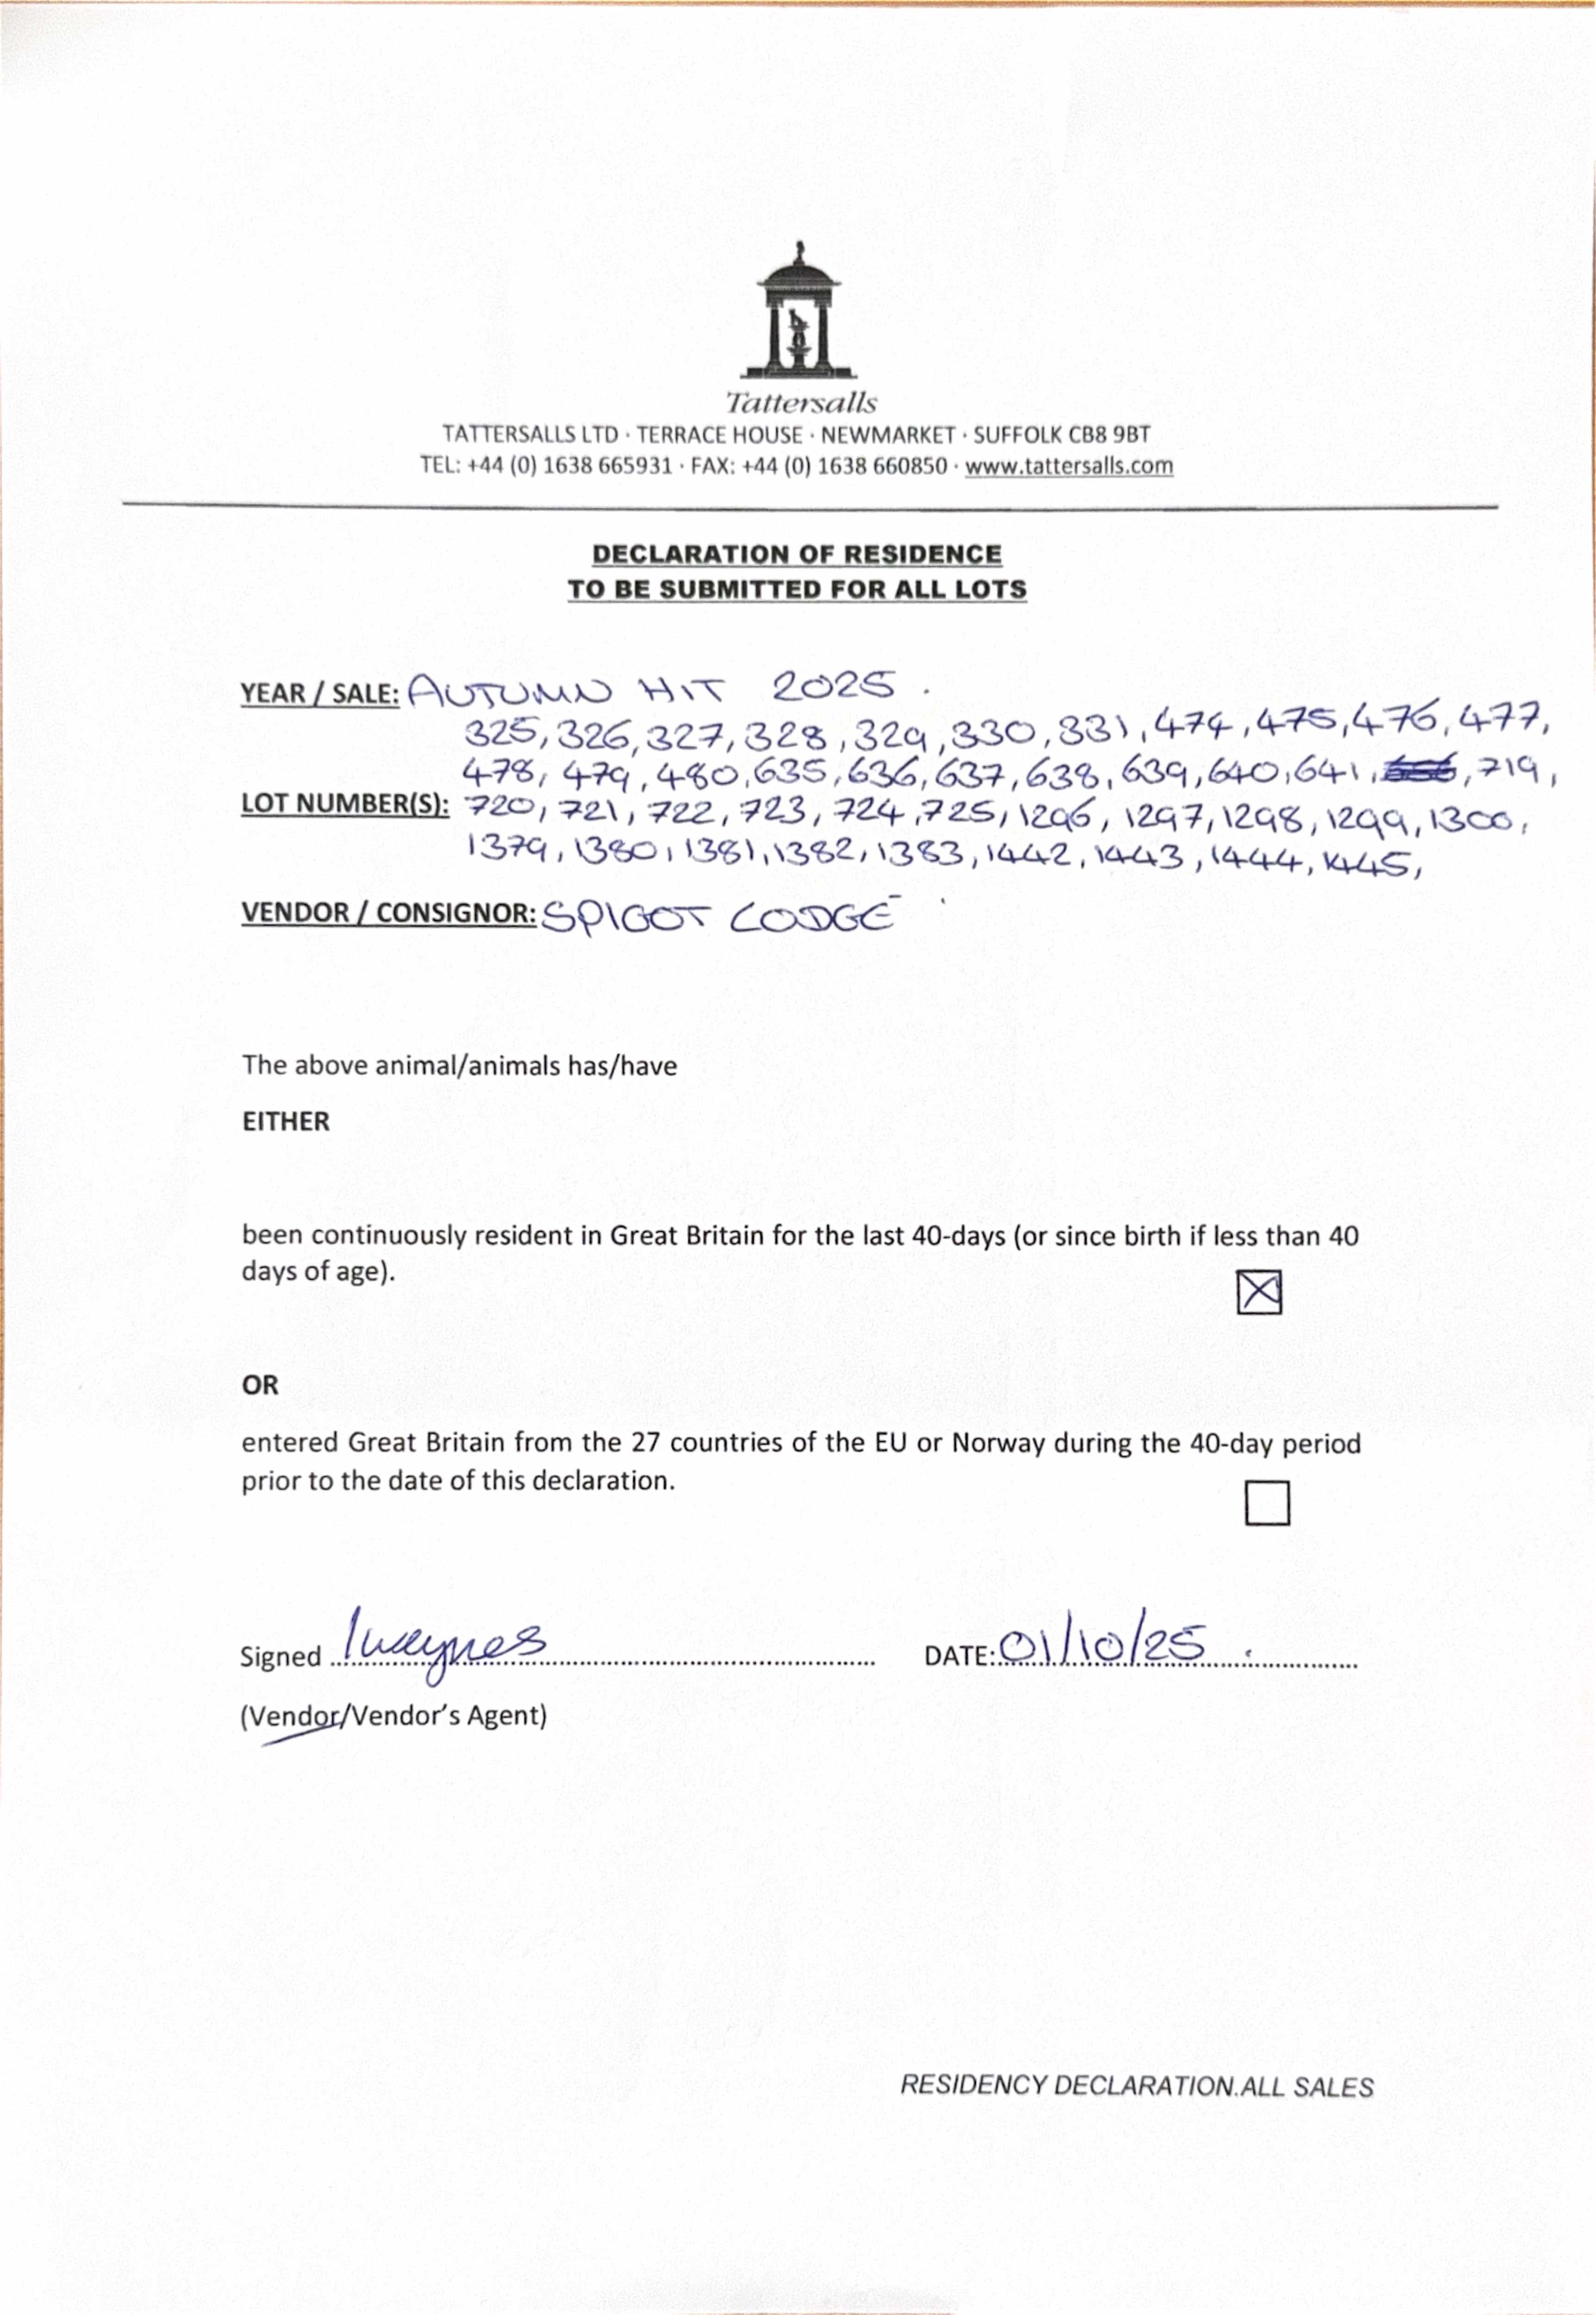 Tattersalls
TATTERSALLS LTD · TERRACE HOUSE · NEWMARKET · SUFFOLK CB8 9BT
TEL: +44 (0) 1638 665931 · FAX: +44 (0) 1638 660850 · www.tattersalls.com
DECLARATION OF RESIDENCE
TO BE SUBMITTED FOR ALL LOTS
YEAR / SALE: AUTUMN HIT 2025.
325, 326, 327, 328, 329, 330, 331, 474, 475, 476, 477,
478, 479, 480, 635, 636, 637, 638, 639, 640, 641, , 719,
LOT NUMBER(S): 720, 721, 722, 723, 724, 725, 1296, 1297, 1298, 1299, 1300,
1379, 1380, 1381, 1382, 1383, 1442, 1443, 1444, 1445,
VENDOR / CONSIGNOR: SPIGOT LODGE
The above animal/animals has/have
EITHER
been continuously resident in Great Britain for the last 40-days (or since birth if less than 40
days of age).
OR
entered Great Britain from the 27 countries of the EU or Norway during the 40-day period
prior to the date of this declaration.
Signed DATE: 01/10/25
(Vendor/Vendor's Agent)
RESIDENCY DECLARATION.ALL SALES